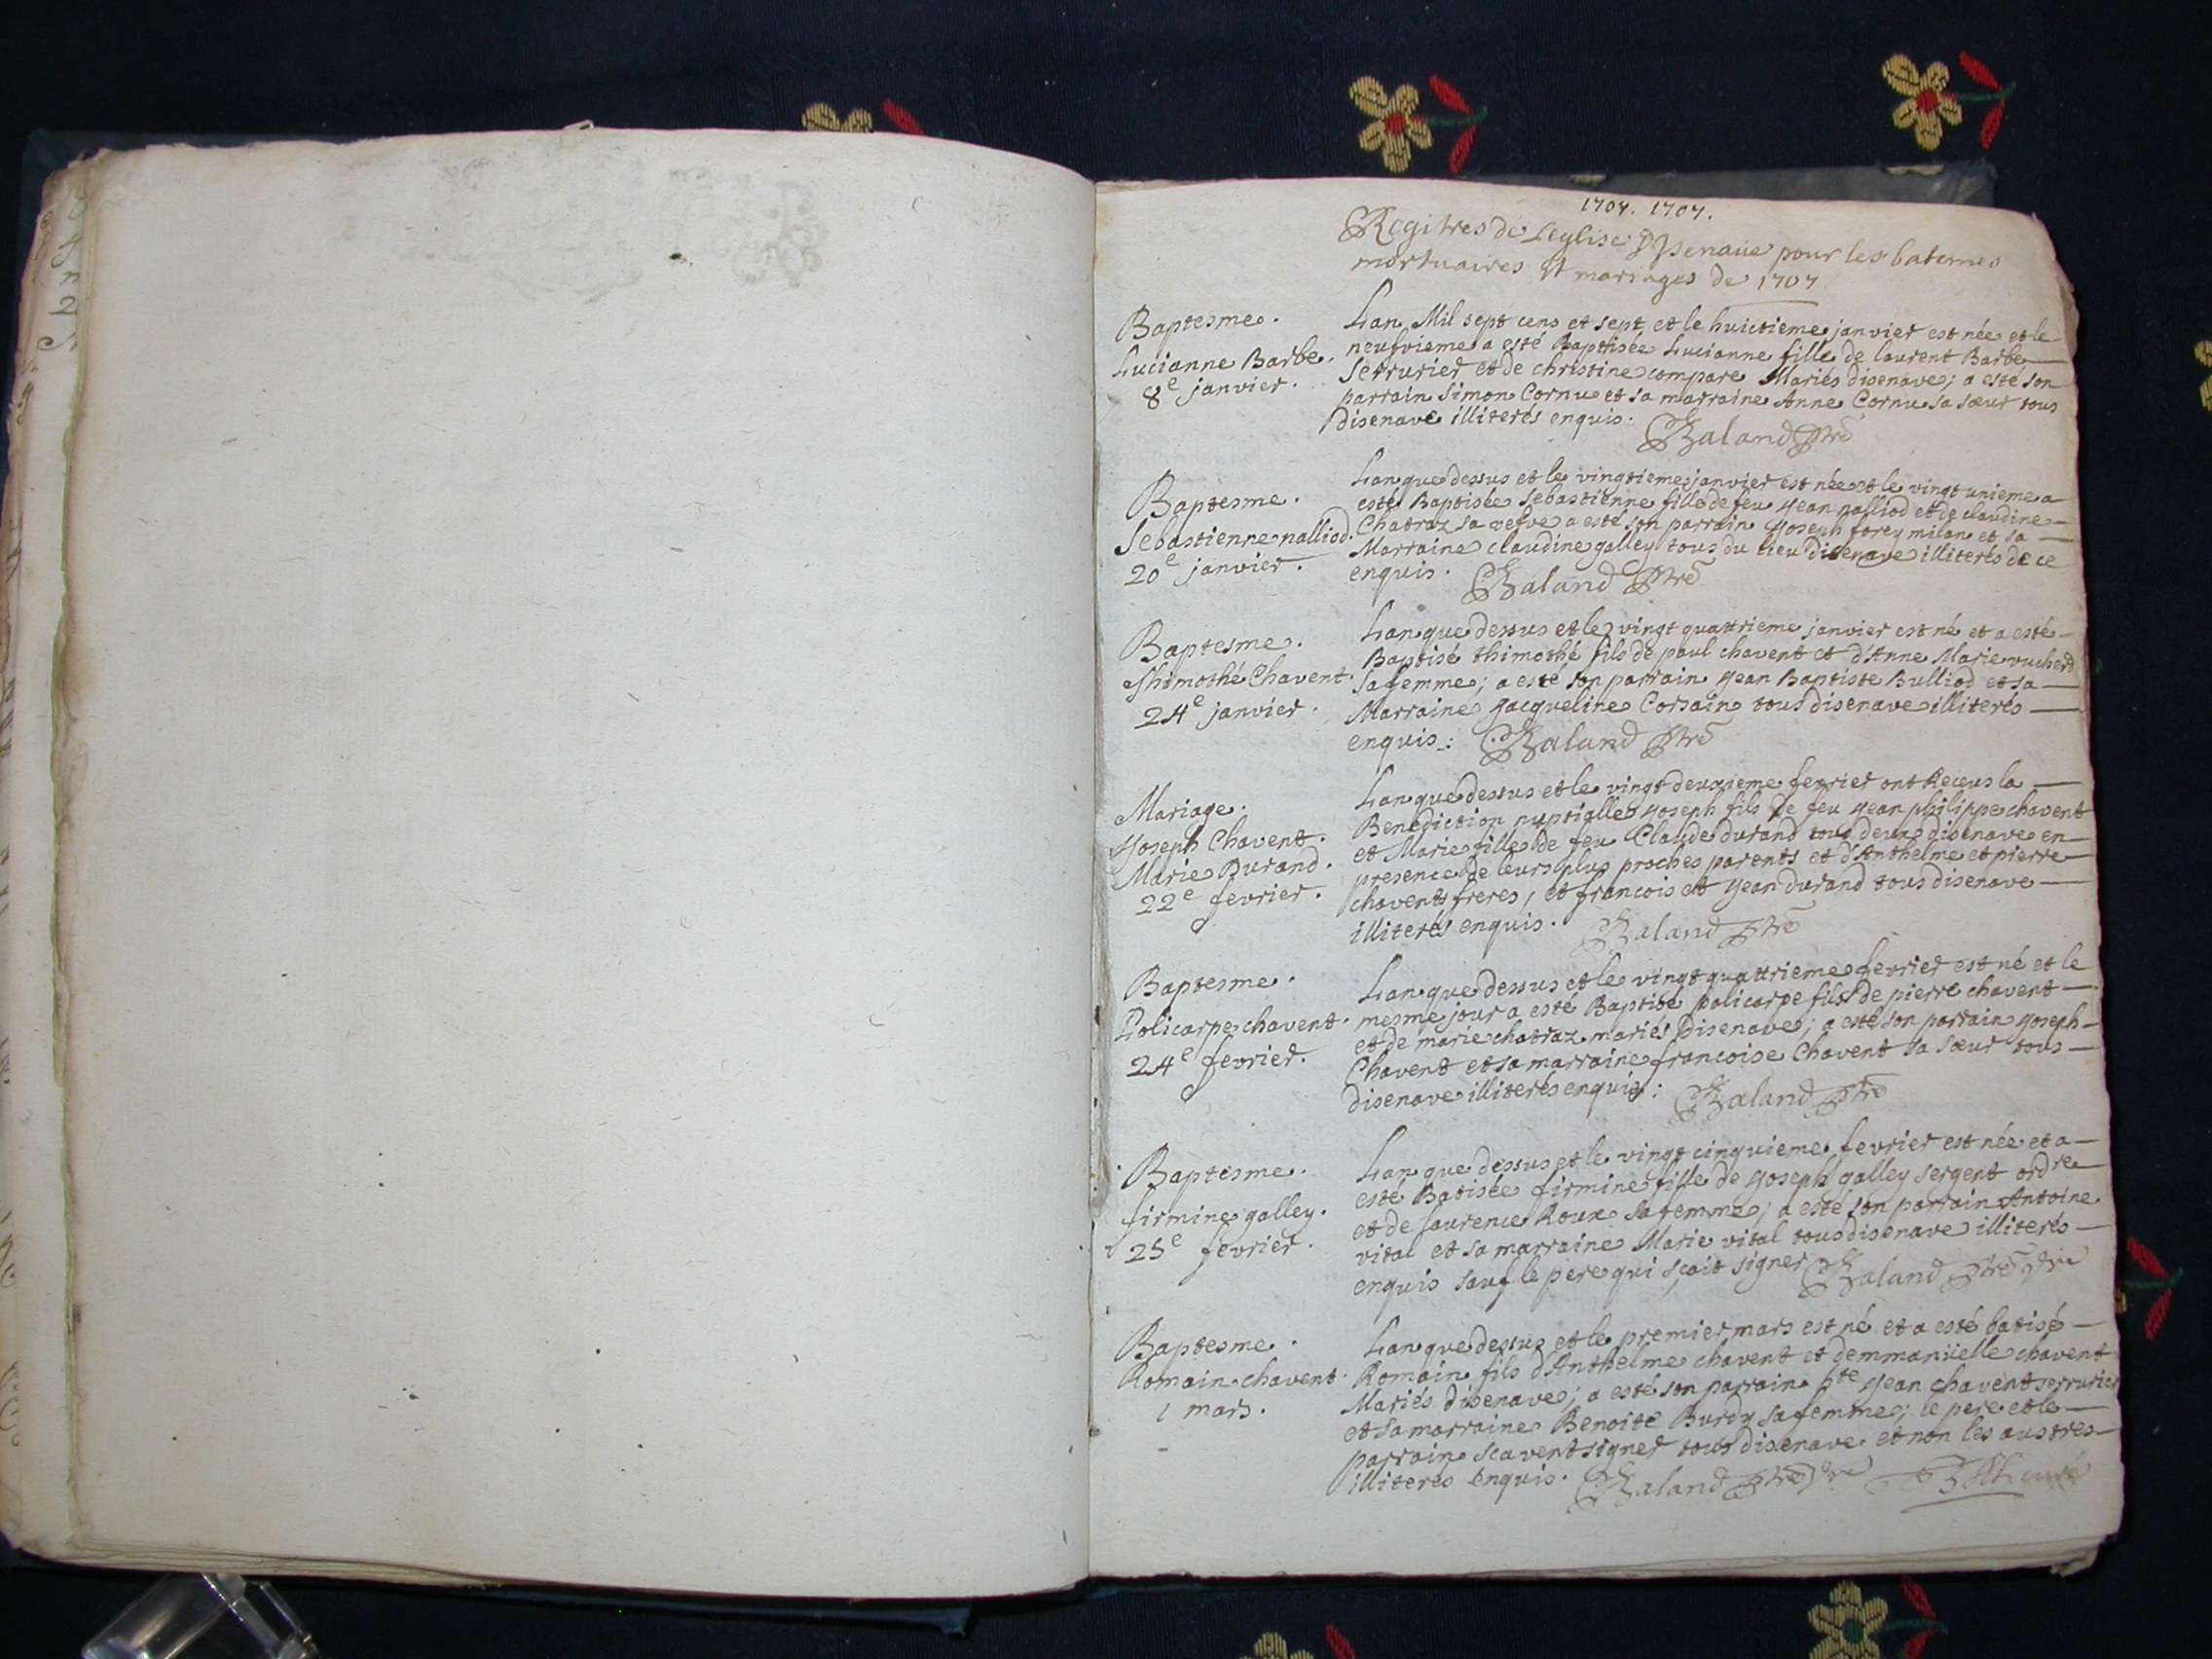 1707. 1707.
Regitres de Leglise D'Isenave pour les batemes
mortuaires et mariages de 1707
Baptesme.
Lucianne Barbe.
8e janvier.
Lan Mil sept cens et sept et le huictieme janvier est née et le
neufvieme a esté Baptisée Lucianne fille de laurent Barbe
Serrurier et de christine compare Mariés disenave; a esté son
parrain Simon Cornu et sa marraine Anne Cornu sa sœur tous
disenave illiterés enquis.
Baland ptre
Baptesme.
Sebastienne nalliod.
20e janvier.
Lan que dessus et le vingtieme janvier est née et le vingt unieme a
esté Baptisée Sebastienne fille de feu Jean nalliod et de claudine
Chatraz sa vefve a esté son parrain Joseph forey milan et sa
Marraine claudine galley tous du lieu disenave illiterés de ce
enquis. Baland ptre
Baptesme.
Thimothé Chavent.
24e janvier.
Lan que dessus et le vingt quattrieme janvier est né et a esté
Baptisé thimothé fils de paul chavent et d'Anne Marie vucherd
sa femme; a esté son parrain Jean Baptiste Bulliod et sa
Marraine Jacqueline Corsain tous disenave illiterés
enquis: Baland ptre
Mariage.
Joseph Chavent.
Marie Durand.
22e fevrier.
Lan que dessus et le vingt deuxieme fevrier ont Receus la
Benediction nuptialle Joseph fils de feu Jean philippe chavent
et Marie fille de feu Claude durand tous deux disenave en
presence de leurs plus proches parents et d'Anthelme et pierre
chavent freres, et francois et Jean durand tous disenave
illiterés enquis. Baland ptre
Baptesme.
Policarpe chavent.
24e fevrier.
Lan que dessus et le vingt quattrieme fevrier est né et le
mesme jour a esté Baptisé policarpe fils de pierre chavent
et de marie chatraz mariés Disenave; a esté son parrain Joseph
Chavent et sa marraine francoise Chavent sa sœur tous
disenave illiterés enquis: Baland ptre
Baptesme.
firmine galley.
25e fevrier.
Lan que dessus et le vingt cinquieme fevrier est née et a
esté Batisée firmine fille de Joseph galley sergent ordre
et de laurence Roux sa femme; a esté son parrain Antoine
vital et sa marraine Marie vital tous disenave illiterés
enquis sauf le pere qui sçait signer Baland ptre
Baptesme.
Romain chavent.
1 mars.
Lan que dessus et le premier mars est né et a esté batisé
Romain fils d'Anthelme chavent et demmanüelle chavent
Mariés disenave; a esté son parrain hte Jean chavent serrurier
et sa marraine Benoite Burdy sa femme; le pere et le
parrain scavent signer tous disenave et non les austres
illiteres enquis. Baland ptre